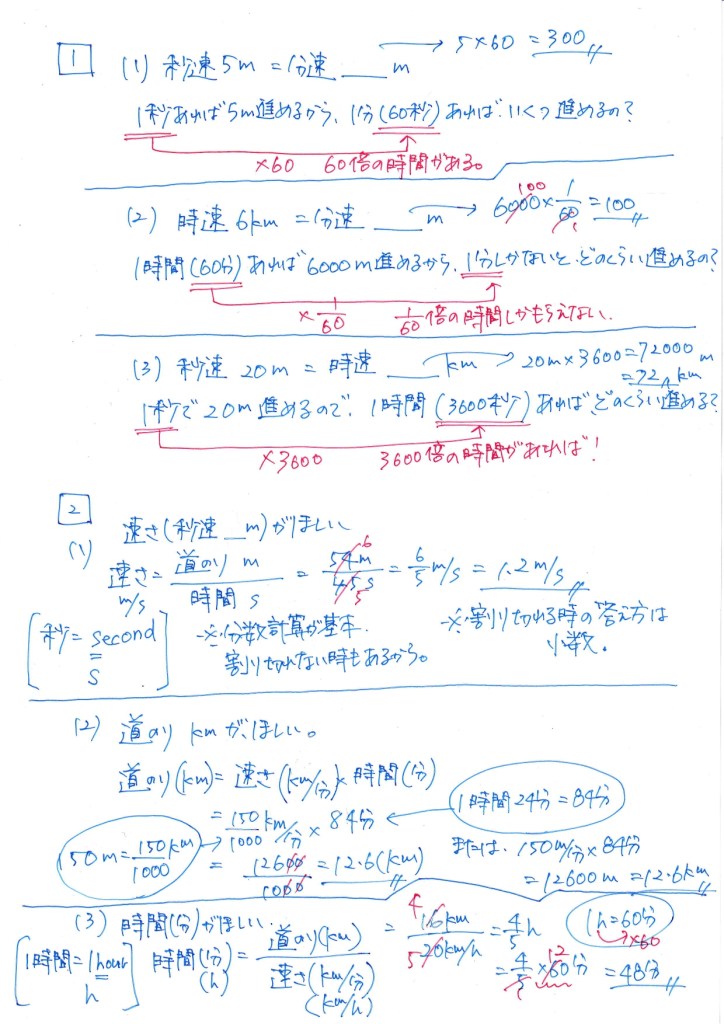 1
(1) 秒速5m = 分速 ___ m → 5×60 = 300
1秒あれば5m進めるから、1分(60秒)あれば、いくつ進めるの?
×60 60倍の時間がある。
(2) 時速6km = 分速 ___ m → 6000×1/60 = 100
100
1時間(60分)あれば6000m進めるから、1分しかないと、どのくらい進めるの?
×1/60 1/60倍の時間しかもらえない.
(3) 秒速20m = 時速 ___ km → 20m×3600=72000m
=72km
1秒で20m進めるので、1時間(3600秒)あれば、どのくらい進める?
×3600 3600倍の時間があれば!
2
(1) 速さ(秒速__m)がほしい
速さ m/s = 道のり m/時間 s = 54m/45s = 6/5 m/s = 1.2m/s
6
5
[秒=second s]
※分数計算が基本.
割り切れない時もあるから。
※割り切れる時の答え方は
小数.
(2) 道のり kmがほしい。
道のり(km) = 速さ(km/分)×時間(分)
1時間24分=84分
= 150/1000 km/分 × 84分
150m=150/1000 km
= 12600/1000 = 12.6(km)
または. 150m/分×84分
= 12600m = 12.6km
(3) 時間(分)がほしい.
[1時間=1hour h]
時間(分)(h) = 道のり(km)/速さ(km/分)(km/h) = 16km/20km/h = 4/5 h
4
5
1h=60分
×60
= 4/5 × 60分 = 48分
12